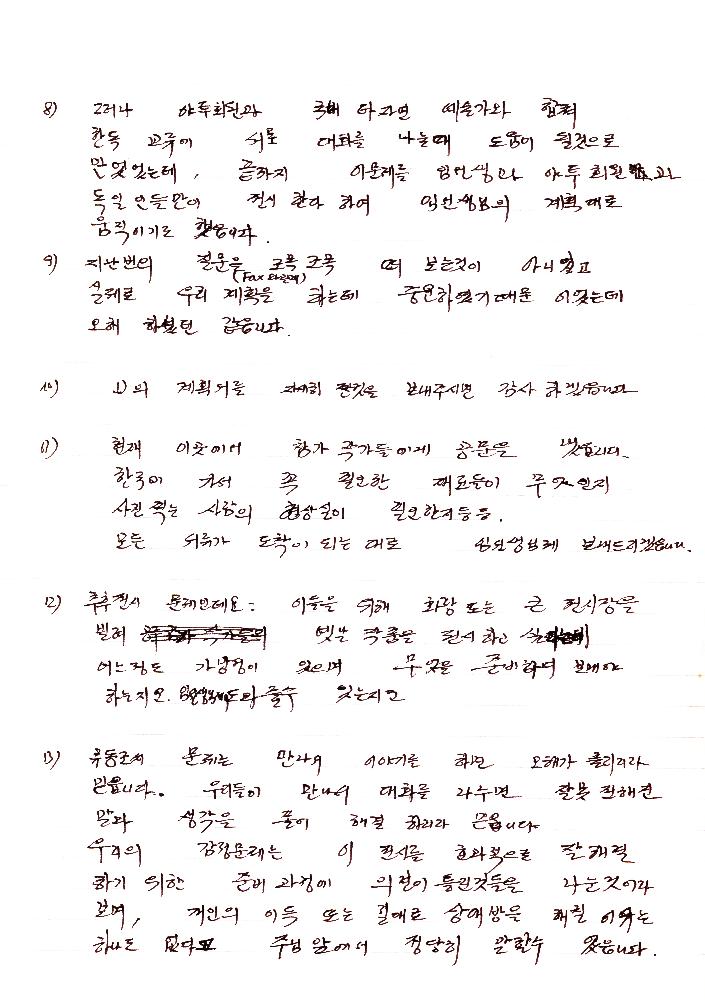 8) 그러나 야투회원과 국내 다라면 예술가와 합쳐
한독 교류에 서로 대화를 나눌때 도움이 될것으로
믿었었는데, 끝까지 이문제를 임선생과 야투회원과
독일인들만이 전시 한다 하여 임선생님의 계획대로
움직이기로 했읍니다.
9) 지난번의 질문을 꼬폭꼬폭 떠 보는것이 아니었고
(Fax 와 편지)
실제로 우리 계획을 하는데 중요하였기 때문 이었는데
오해 하셨던 같읍니다.
10) 1)의 계획서를 자세히 쓴것을 보내주시면 감사 하겠읍니다
11) 현재 이곳에서 참가 작가들에게 공문을 냈읍니다.
한국에 가서 꼭 필요한 재료들이 무엇인지
사진 찍는 사람의 현상실이 필요한지등을.
모든 서류가 도착이 되는 대로 임선생님께 보내드리겠읍니다.
12) 추추전시 문제인데요: 이들을 위해 화랑 또는 큰 전시장을
빌려 옛날 작품을 전시하고 싶은데
어느정도 가능성이 있으며 무엇을 준비하여 보내야
하는지요. 도와줄수 있는지요
13) 유동조씨 문제는 만나서 이야기를 하면 오해가 풀리리라
믿읍니다. 우리들이 만나서 대화를 나누면 잘못 전해진
말과 생각을 풀어 해결 하리라 믿읍니다.
우리의 감정문제는 이 전시를 효과적으로 잘해결
하기 위한 준비 과정에 의견이 틀린것들을 나눈것이라
보며, 개인의 이득 또는 절대로 상대방을 해칠 이유는
하나도 없다고 주님 앞에서 정당히 말할수 있읍니다.